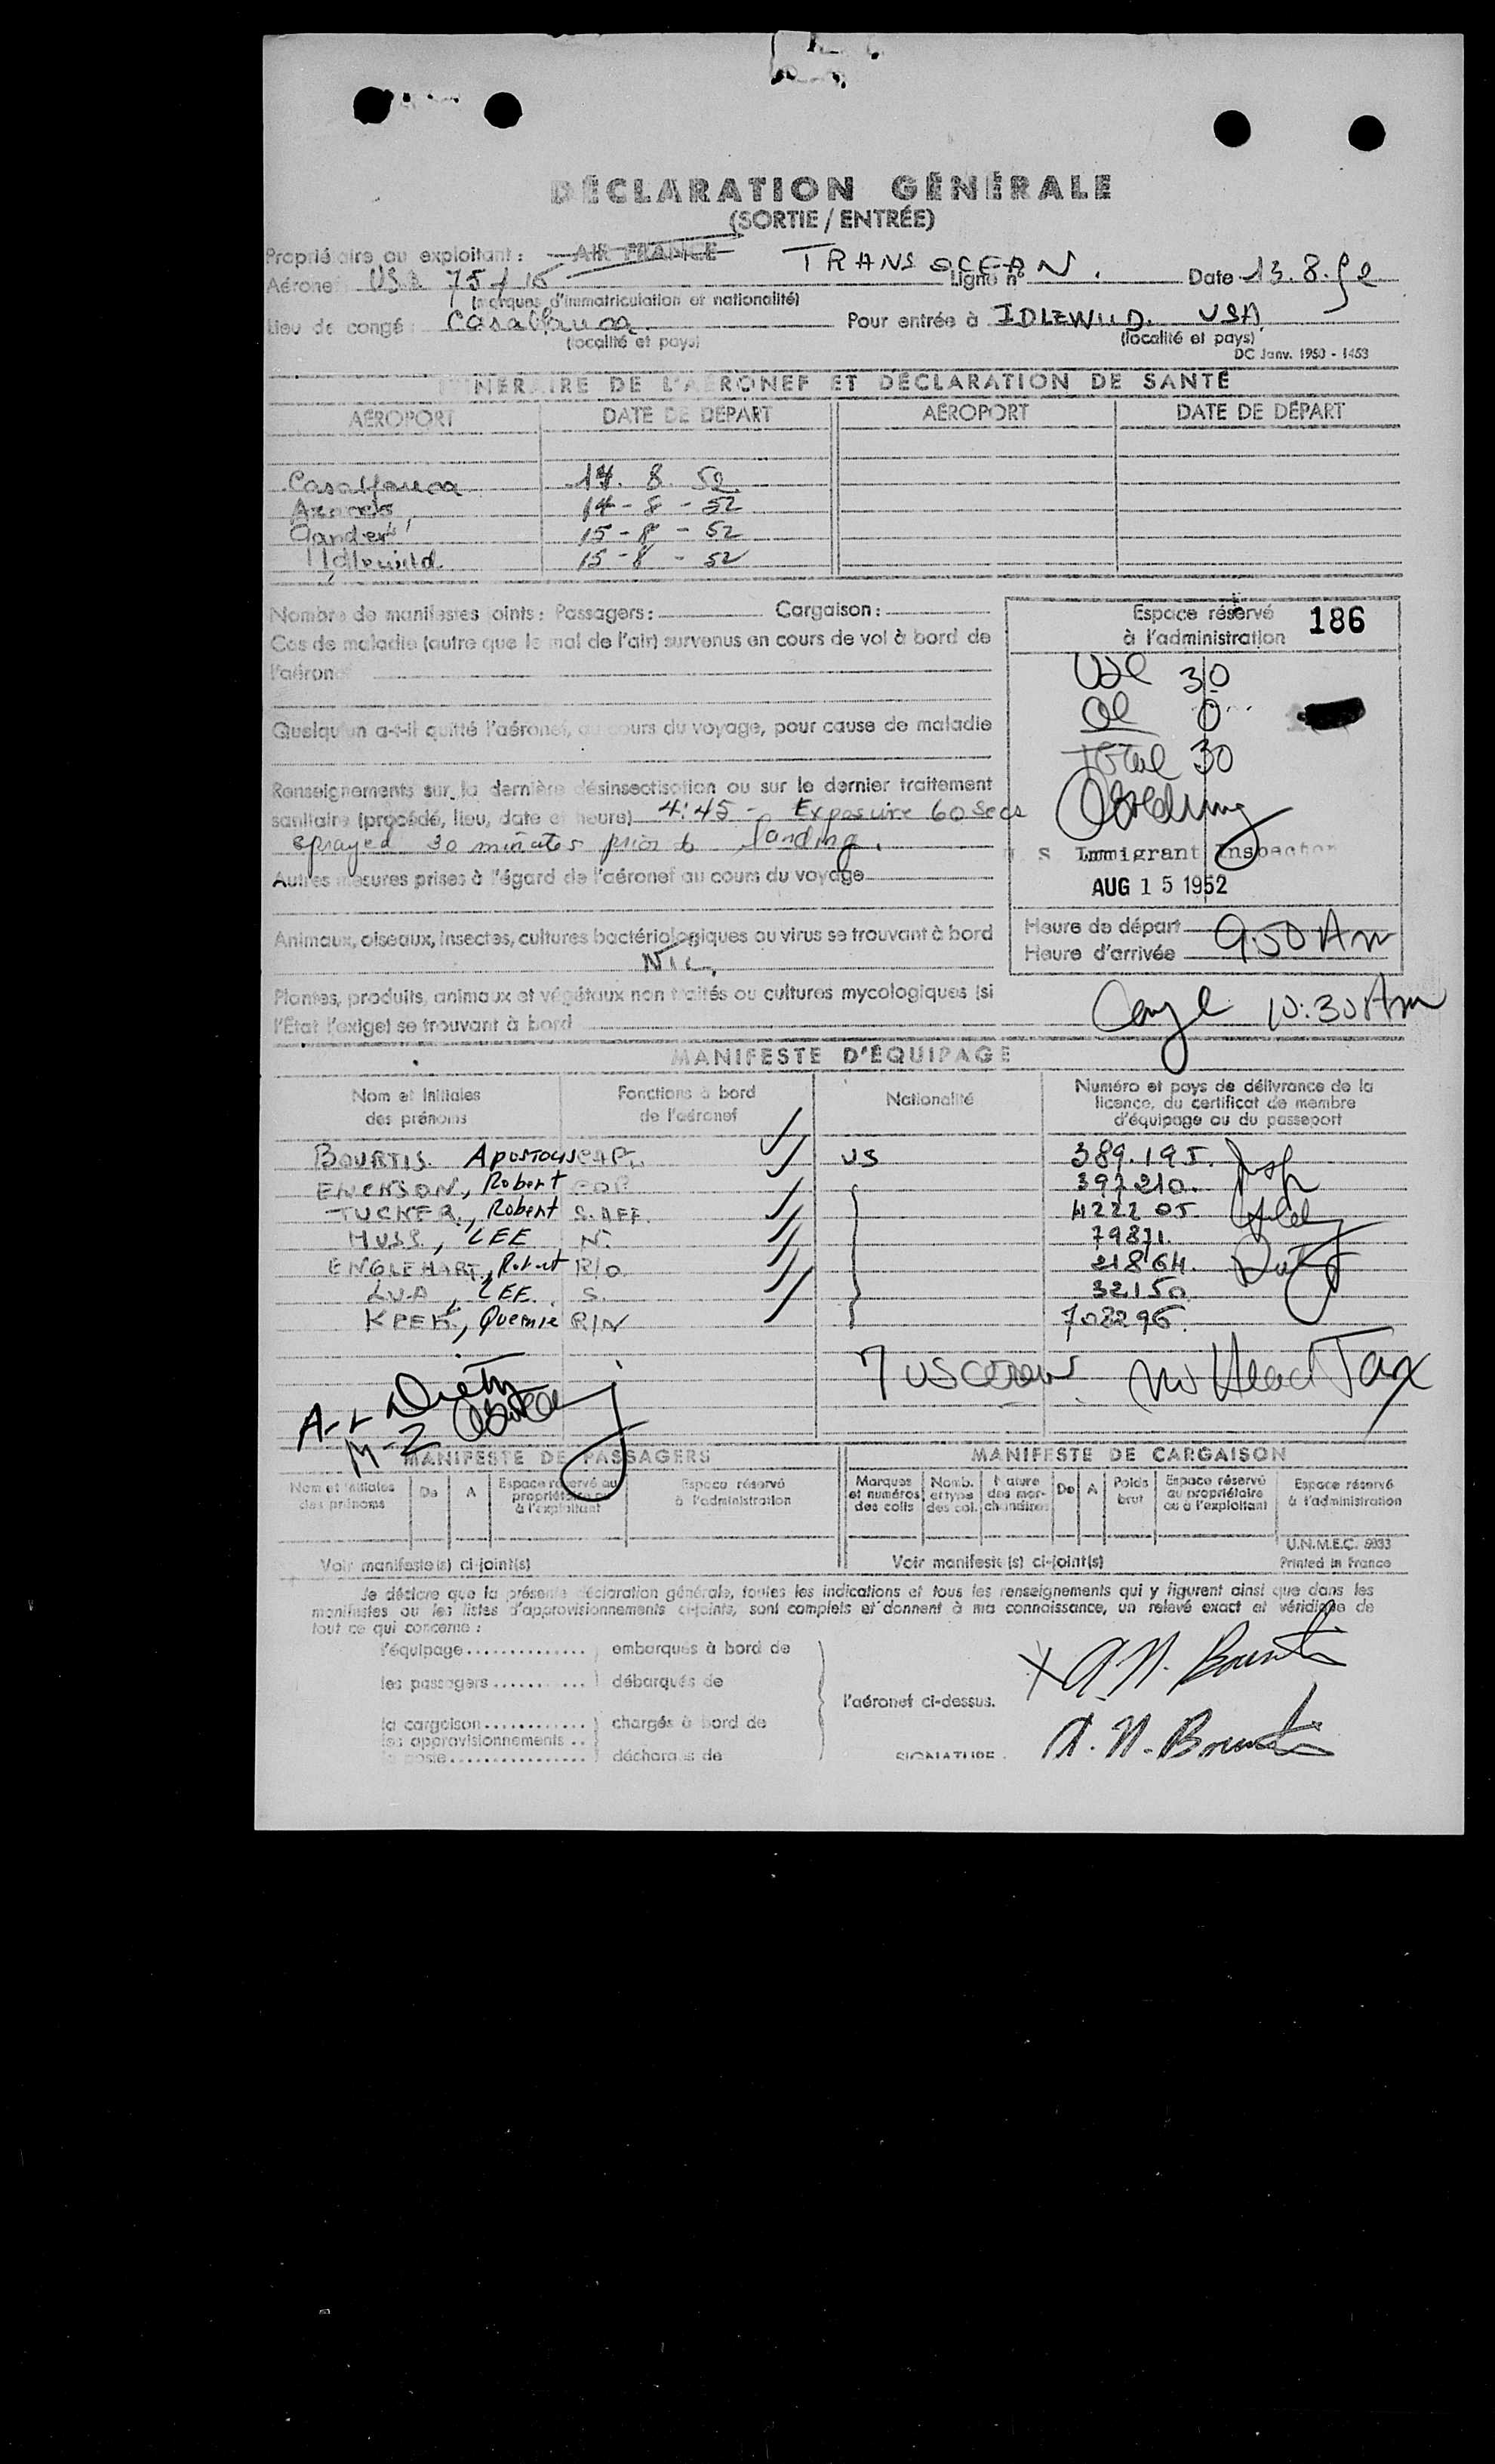 DÉCLARATION GÉNÉRALE
(SORTIE / ENTRÉE)
Propriétaire ou exploitant : AIR FRANCE TRANSOCEAN.
Aéronef Ligne n° Date 13.8.52
(marques d'immatriculation et nationalité)
Lieu de congé : Casablanca Pour entrée à IDLEWILD. USA
(localité et pays) (localité et pays)
DC Janv. 1950 - 1453
ITINÉRAIRE DE L'AÉRONEF ET DÉCLARATION DE SANTÉ
AÉROPORT DATE DE DÉPART AÉROPORT DATE DE DÉPART
Casablanca 14. 8. 52
14 - 8 - 52
Gander 15 - 8 - 52
Idlewild 15 - 8 - 52
Nombre de manifestes joints : Passagers : Cargaison :
Cas de maladie (autre que le mal de l'air) survenus en cours de vol à bord de
l'aéronef
Quelqu'un a-t-il quitté l'aéronef, au cours du voyage, pour cause de maladie
Renseignements sur la dernière désinsectisation ou sur le dernier traitement
sanitaire (procédé, lieu, date et heure) 4:45 - Exposure 60 Secs
sprayed 30 minutes prior to landing.
Autres mesures prises à l'égard de l'aéronef au cours du voyage
Animaux, oiseaux, insectes, cultures bactériologiques ou virus se trouvant à bord
NIL.
Plantes, produits, animaux et végétaux non traités ou cultures mycologiques (si
l'État l'exige) se trouvant à bord
Espace réservé
à l'administration 186
USC 30
0
Total 30
U. S. Immigrant Inspector
AUG 15 1952
Heure de départ
Heure d'arrivée 950 Am
10:30 Am
MANIFESTE D'ÉQUIPAGE
Nom et Initiales des prénoms
Fonctions à bord de l'aéronef
Nationalité
Numéro et pays de délivrance de la licence, du certificat de membre d'équipage ou du passeport
BOURTIS APOSTOLIS CAP. US 389.195.
ERICKSON, Robert COP 397210.
TUCKER, Robert S. OFF. 422205
HUSS, LEE N. 79871.
ENGLEHART, Robert R/O 21864.
LUA, LEE. S. 32150
KPEK, Quemie R/N 708296.
7 US crew no Head Tax
M-2
MANIFESTE DE PASSAGERS MANIFESTE DE CARGAISON
Nom et initiales des prénoms
De
A
Espace réservé au propriétaire ou à l'exploitant
Espace réservé à l'administration
Marques et numéros des colis
Nomb. et type des col.
Nature des marchandises
De
A
Poids brut
Espace réservé au propriétaire ou à l'exploitant
Espace réservé à l'administration
U.N.M.E.C. 5033
Voir manifeste(s) ci-joint(s) Voir manifeste(s) ci-joint(s) Printed in France
Je déclare que la présente déclaration générale, toutes les indications et tous les renseignements qui y figurent ainsi que dans les
manifestes ou les listes d'approvisionnements ci-joints, sont complets et donnent à ma connaissance, un relevé exact et véridique de
tout ce qui concerne :
l'équipage embarqués à bord de
les passagers débarqués de
l'aéronef ci-dessus.
la cargaison chargés à bord de
les approvisionnements
la poste déchargés de
X A. N. Bourtis
SIGNATURE : A. N. Bourtis